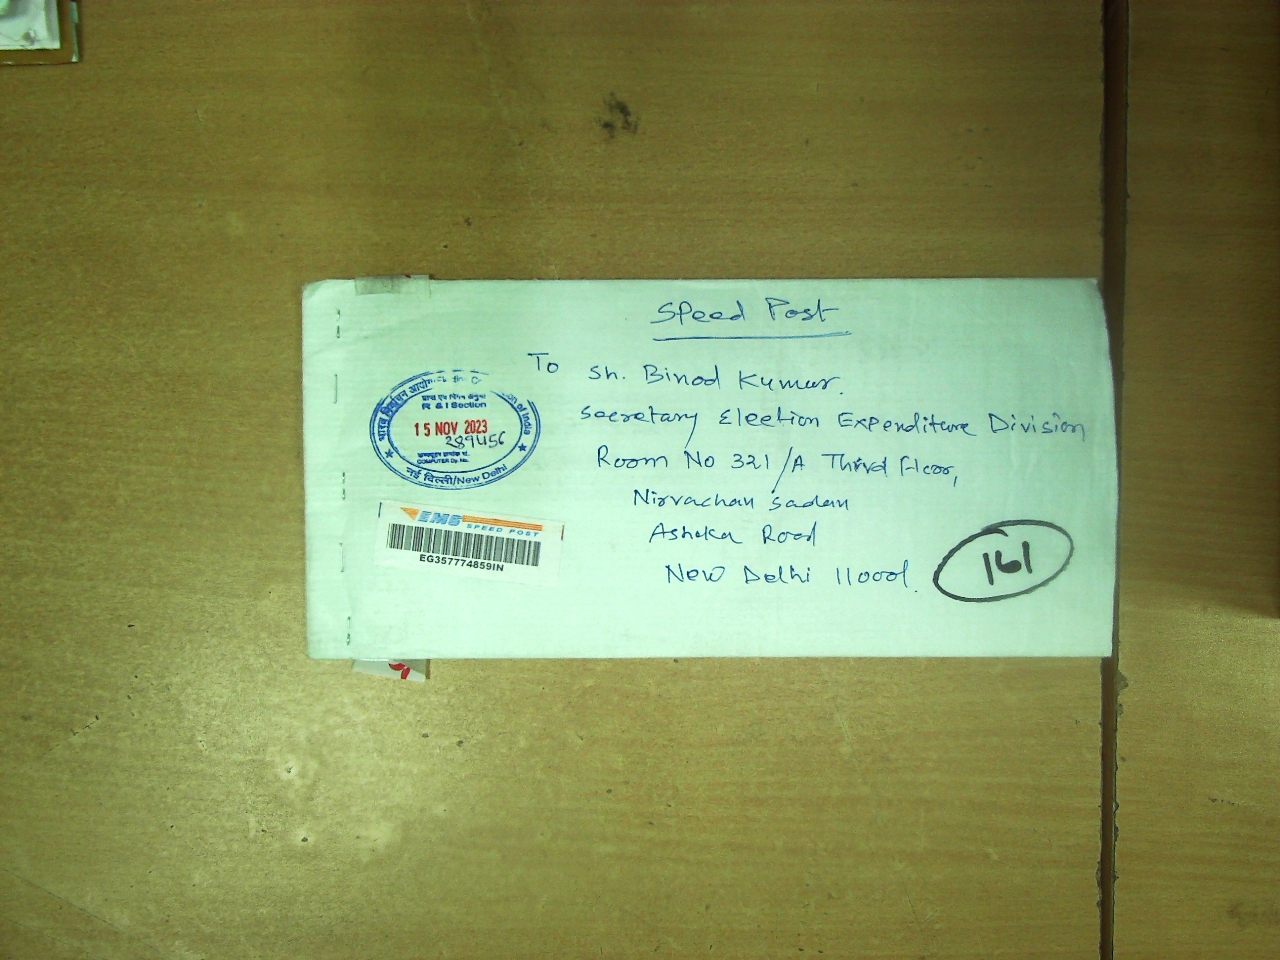 Speed Post
To Sh. Binod Kumar.
Secretary Election Expenditure Division
Room No 321/A Third floor,
Nirvachan Sadan
Ashoka Road
New Delhi 110001.
161
भारत निर्वाचन आयोग
ion of India
R & I Section
15 NOV 2023
289456
COMPUTER Dy. No.
नई दिल्ली/New Delhi
EMS
SPEED POST
EG357774859IN